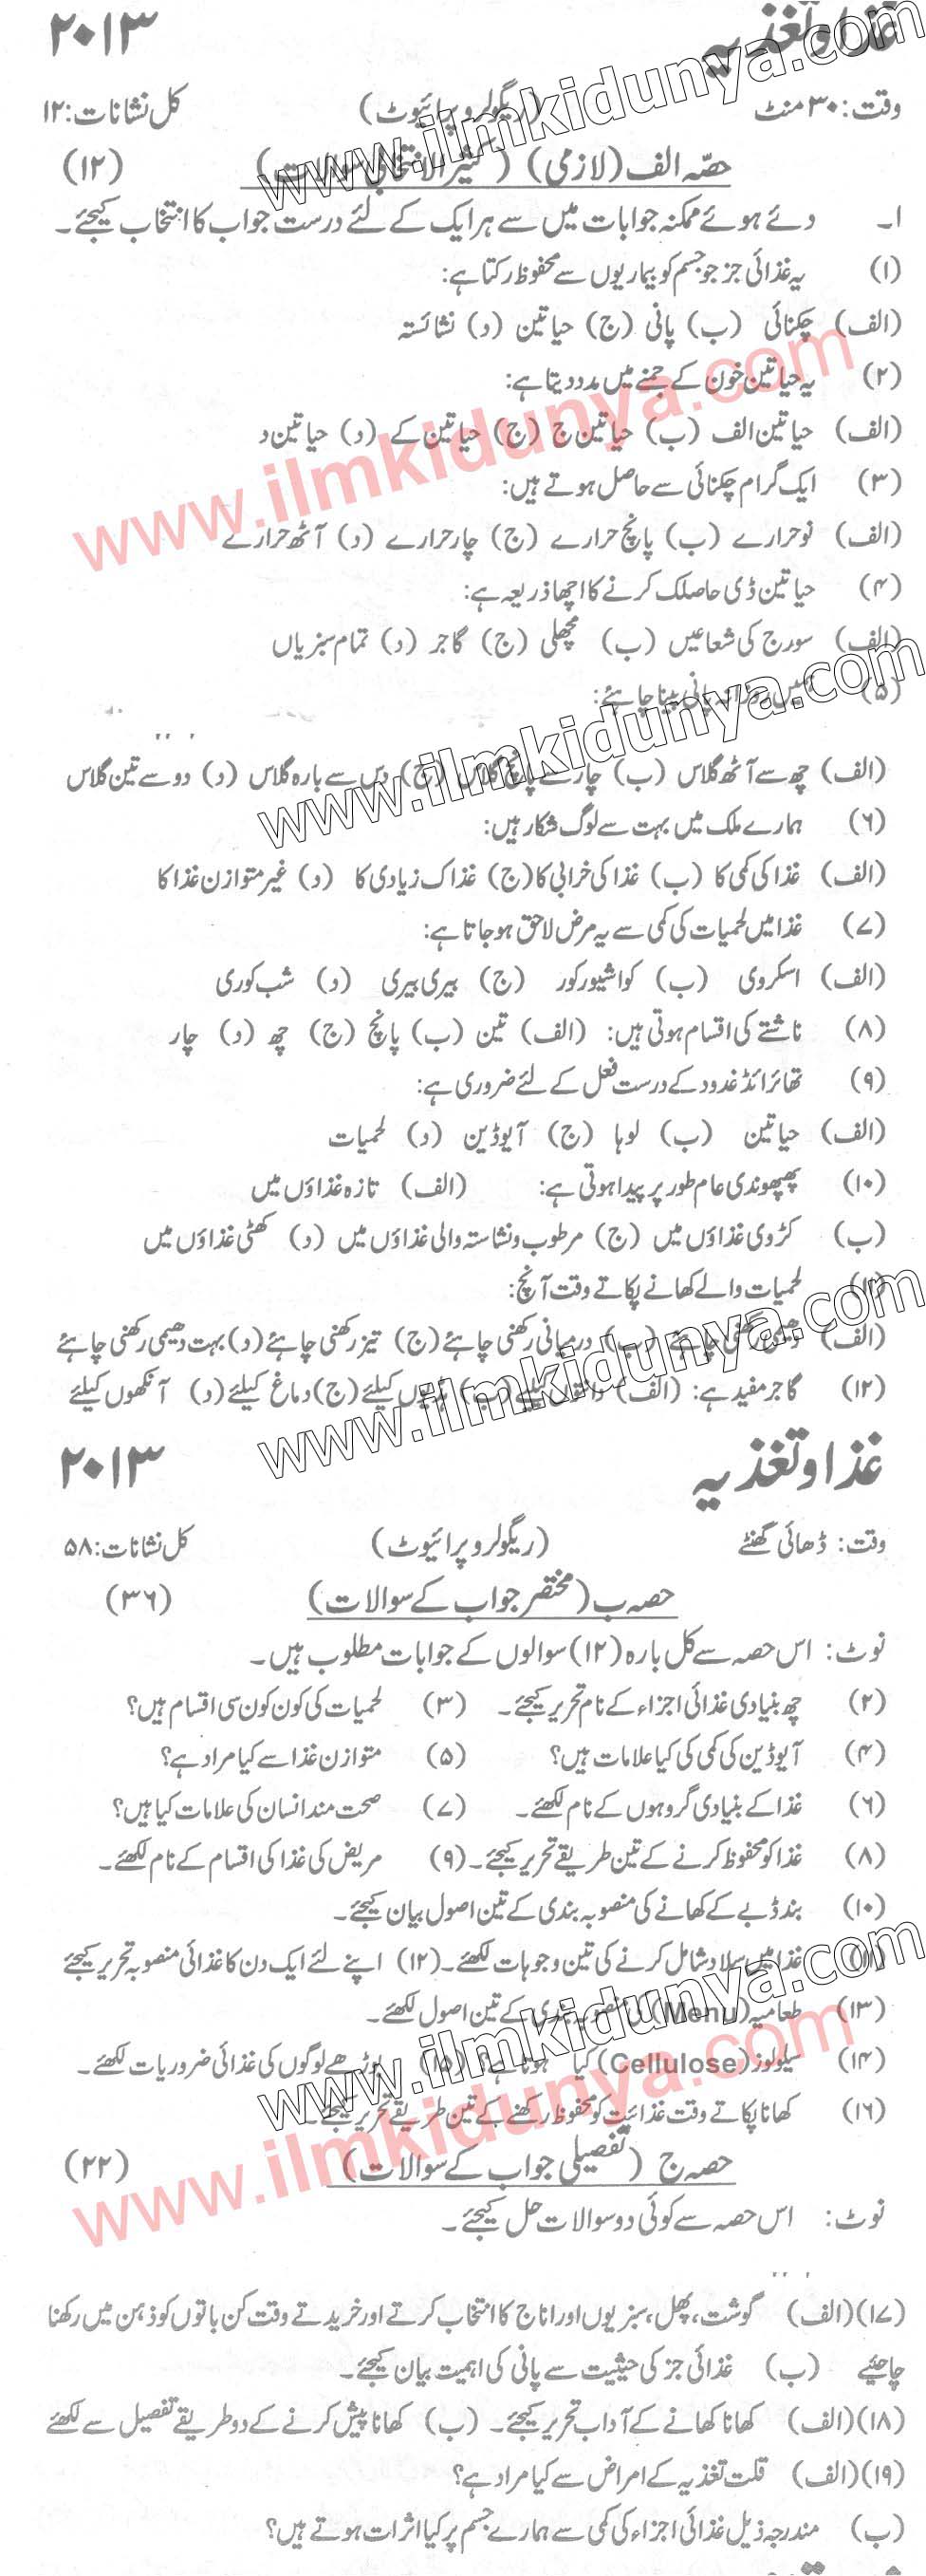 غذا و تغذیہ ۲۰۱۳
وقت: ۳۰ منٹ (ریگولر و پرائیوٹ) کل نشانات: ۱۲
حصّہ الف (لازمی) (کثیر الانتخابی سوالات) (۱۲)
۱۔ دئے ہوئے ممکنہ جوابات میں سے ہر ایک کے لئے درست جواب کا انتخاب کیجئے۔
(۱) یہ غذائی جز جو جسم کو بیماریوں سے محفوظ رکتا ہے:
(الف) چکنائی (ب) پانی (ج) حیاتین (د) نشائستہ
(۲) یہ حیاتین خون کے جمنے میں مدد دیتا ہے:
(الف) حیاتین الف (ب) حیاتین ج (ج) حیاتین کے (د) حیاتین د
(۳) ایک گرام چکنائی سے حاصل ہوتے ہیں:
(الف) نو حرارے (ب) پانچ حرارے (ج) چار حرارے (د) آٹھ حرارے
(۴) حیاتین ڈی حاصلک کرنے کا اچھا ذریعہ ہے:
(الف) سورج کی شعاعیں (ب) مچھلی (ج) گاجر (د) تمام سبزیاں
(۵) ہمیں روزانہ پانی پینا چاہئے:
(الف) چھ سے آٹھ گلاس (ب) چار سے پانچ گلاس (ج) دس سے بارہ گلاس (د) دو سے تین گلاس
(۶) ہمارے ملک میں بہت سے لوگ شکار ہیں:
(الف) غذا کی کمی کا (ب) غذا کی خرابی کا (ج) غذاک زیادی کا (د) غیر متوازن غذا کا
(۷) غذا میں لحمیات کی کمی سے یہ مرض لاحق ہو جاتا ہے:
(الف) اسکروی (ب) کواشیورکور (ج) بیری بیری (د) شب کوری
(۸) ناشتے کی اقسام ہوتی ہیں: (الف) تین (ب) پانچ (ج) چھ (د) چار
(۹) تھائرائڈ غدود کے درست فعل کے لئے ضروری ہے:
(الف) حیاتین (ب) لوہا (ج) آیوڈین (د) لحمیات
(۱۰) پھپھوندی عام طور پر پیدا ہوتی ہے: (الف) تازہ غذاؤں میں
(ب) کڑوی غذاؤں میں (ج) مرطوب و نشاستہ والی غذاؤں میں (د) کھٹی غذاؤں میں
(۱۱) لحمیات والے کھانے پکاتے وقت آنچ:
(الف) دھیمی رکھنی چاہئے (ب) درمیانی رکھنی چاہئے (ج) تیز رکھنی چاہئے (د) بہت دھیمی رکھنی چاہئے
(۱۲) گاجر مفید ہے: (الف) دانتوں کیلئے (ب) ہڈیوں کیلئے (ج) دماغ کیلئے (د) آنکھوں کیلئے
غذا و تغذیہ ۲۰۱۳
وقت: ڈھائی گھنٹے (ریگولر و پرائیوٹ) کل نشانات: ۵۸
حصہ ب (مختصر جواب کے سوالات) (۳۶)
نوٹ: اس حصہ سے کل بارہ (۱۲) سوالوں کے جوابات مطلوب ہیں۔
(۲) چھ بنیادی غذائی اجزاء کے نام تحریر کیجئے۔ (۳) لحمیات کی کون کون سی اقسام ہیں؟
(۴) آیوڈین کی کمی کی کیا علامات ہیں؟ (۵) متوازن غذا سے کیا مراد ہے؟
(۶) غذا کے بنیادی گروہوں کے نام لکھئے۔ (۷) صحت مند انسان کی علامات کیا ہیں؟
(۸) غذا کو محفوظ کرنے کے تین طریقے تحریر کیجئے۔ (۹) مریض کی غذا کی اقسام کے نام لکھئے۔
(۱۰) بند ڈبے کے کھانے کی منصوبہ بندی کے تین اصول بیان کیجئے۔
(۱۱) غذا میں سلاد شامل کرنے کی تین وجوہات لکھئے۔ (۱۲) اپنے لئے ایک دن کا غذائی منصوبہ تحریر کیجئے
(۱۳) طعامیہ (Menu) کی منصوبہ بندی کے تین اصول لکھئے۔
(۱۴) سیلولوز (Cellulose) کیا ہوتا ہے؟ (۱۵) بوڑھے لوگوں کی غذائی ضروریات لکھئے۔
(۱۶) کھانا پکاتے وقت غذائیت کو محفوظ رکھنے کے تین طریقے تحریر کیجئے۔
حصہ ج (تفصیلی جواب کے سوالات) (۲۲)
نوٹ: اس حصہ سے کوئی دو سوالات حل کیجئے۔
(۱۷)(الف) گوشت، پھل، سبزیوں اور اناج کا انتخاب کرتے اور خریدتے وقت کن باتوں کو ذہن میں رکھنا
چاہئیے (ب) غذائی جز کی حیثیت سے پانی کی اہمیت بیان کیجئے۔
(۱۸)(الف) کھانا کھانے کے آداب تحریر کیجئے۔ (ب) کھانا پیش کرنے کے دو طریقے تفصیل سے لکھئے
(۱۹)(الف) قلت تغذیہ کے امراض سے کیا مراد ہے؟
(ب) مندرجہ ذیل غذائی اجزاء کی کمی سے ہمارے جسم پر کیا اثرات ہوتے ہیں؟
www.ilmkidunya.com
www.ilmkidunya.com
www.ilmkidunya.com
www.ilmkidunya.com
www.ilmkidunya.com
www.ilmkidunya.com